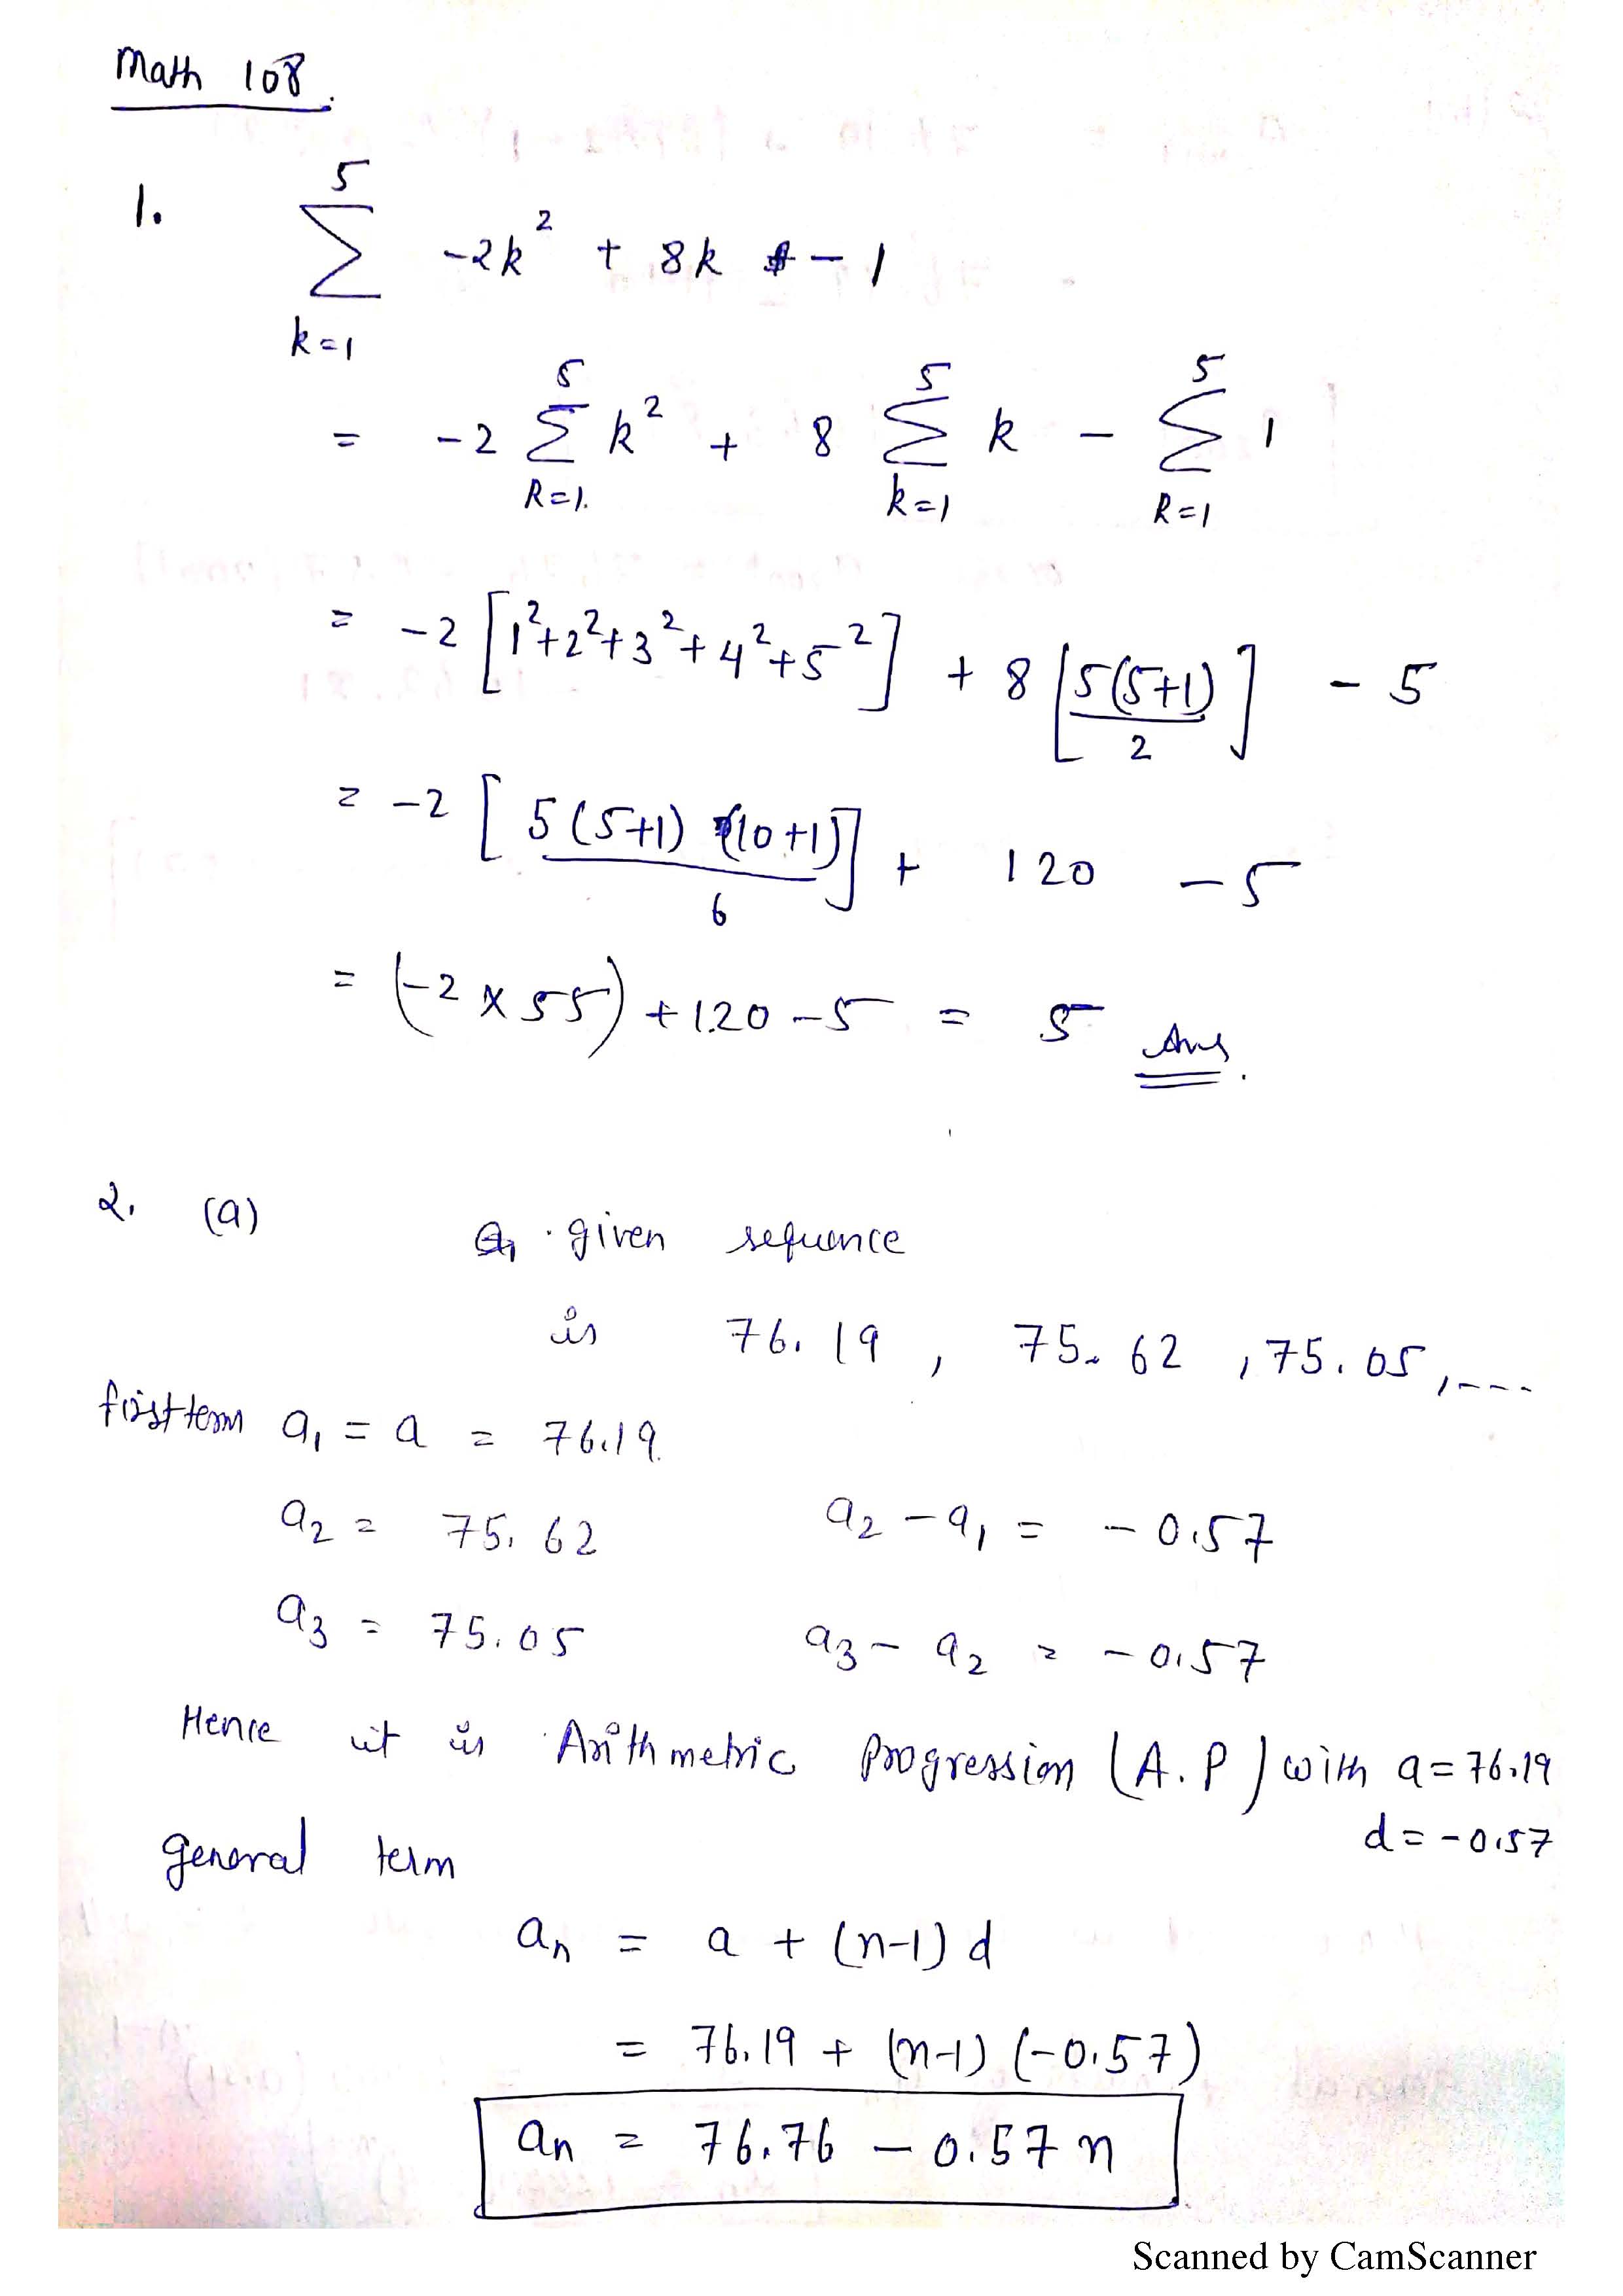 Math 108.
1. \sum_{k=1}^{5} -2k^2 + 8k - 1
= -2 \sum_{k=1}^{5} k^2 + 8 \sum_{k=1}^{5} k - \sum_{k=1}^{5} 1
= -2 [1^2+2^2+3^2+4^2+5^2] + 8 [\frac{5(5+1)}{2}] - 5
= -2 [\frac{5(5+1)(10+1)}{6}] + 120 - 5
= (-2 × 55) + 120 - 5 = 5 Ans.
2. (a) given sequence
is 76.19, 75.62, 75.05, ----
first term a_1 = a = 76.19.
a_2 = 75.62 a_2 - a_1 = -0.57
a_3 = 75.05 a_3 - a_2 = -0.57
Hence it is Arithmetric Progression (A.P) with a = 76.19
d = -0.57
general term
a_n = a + (n-1) d
= 76.19 + (n-1) (-0.57)
a_n = 76.76 - 0.57 n
Scanned by CamScanner